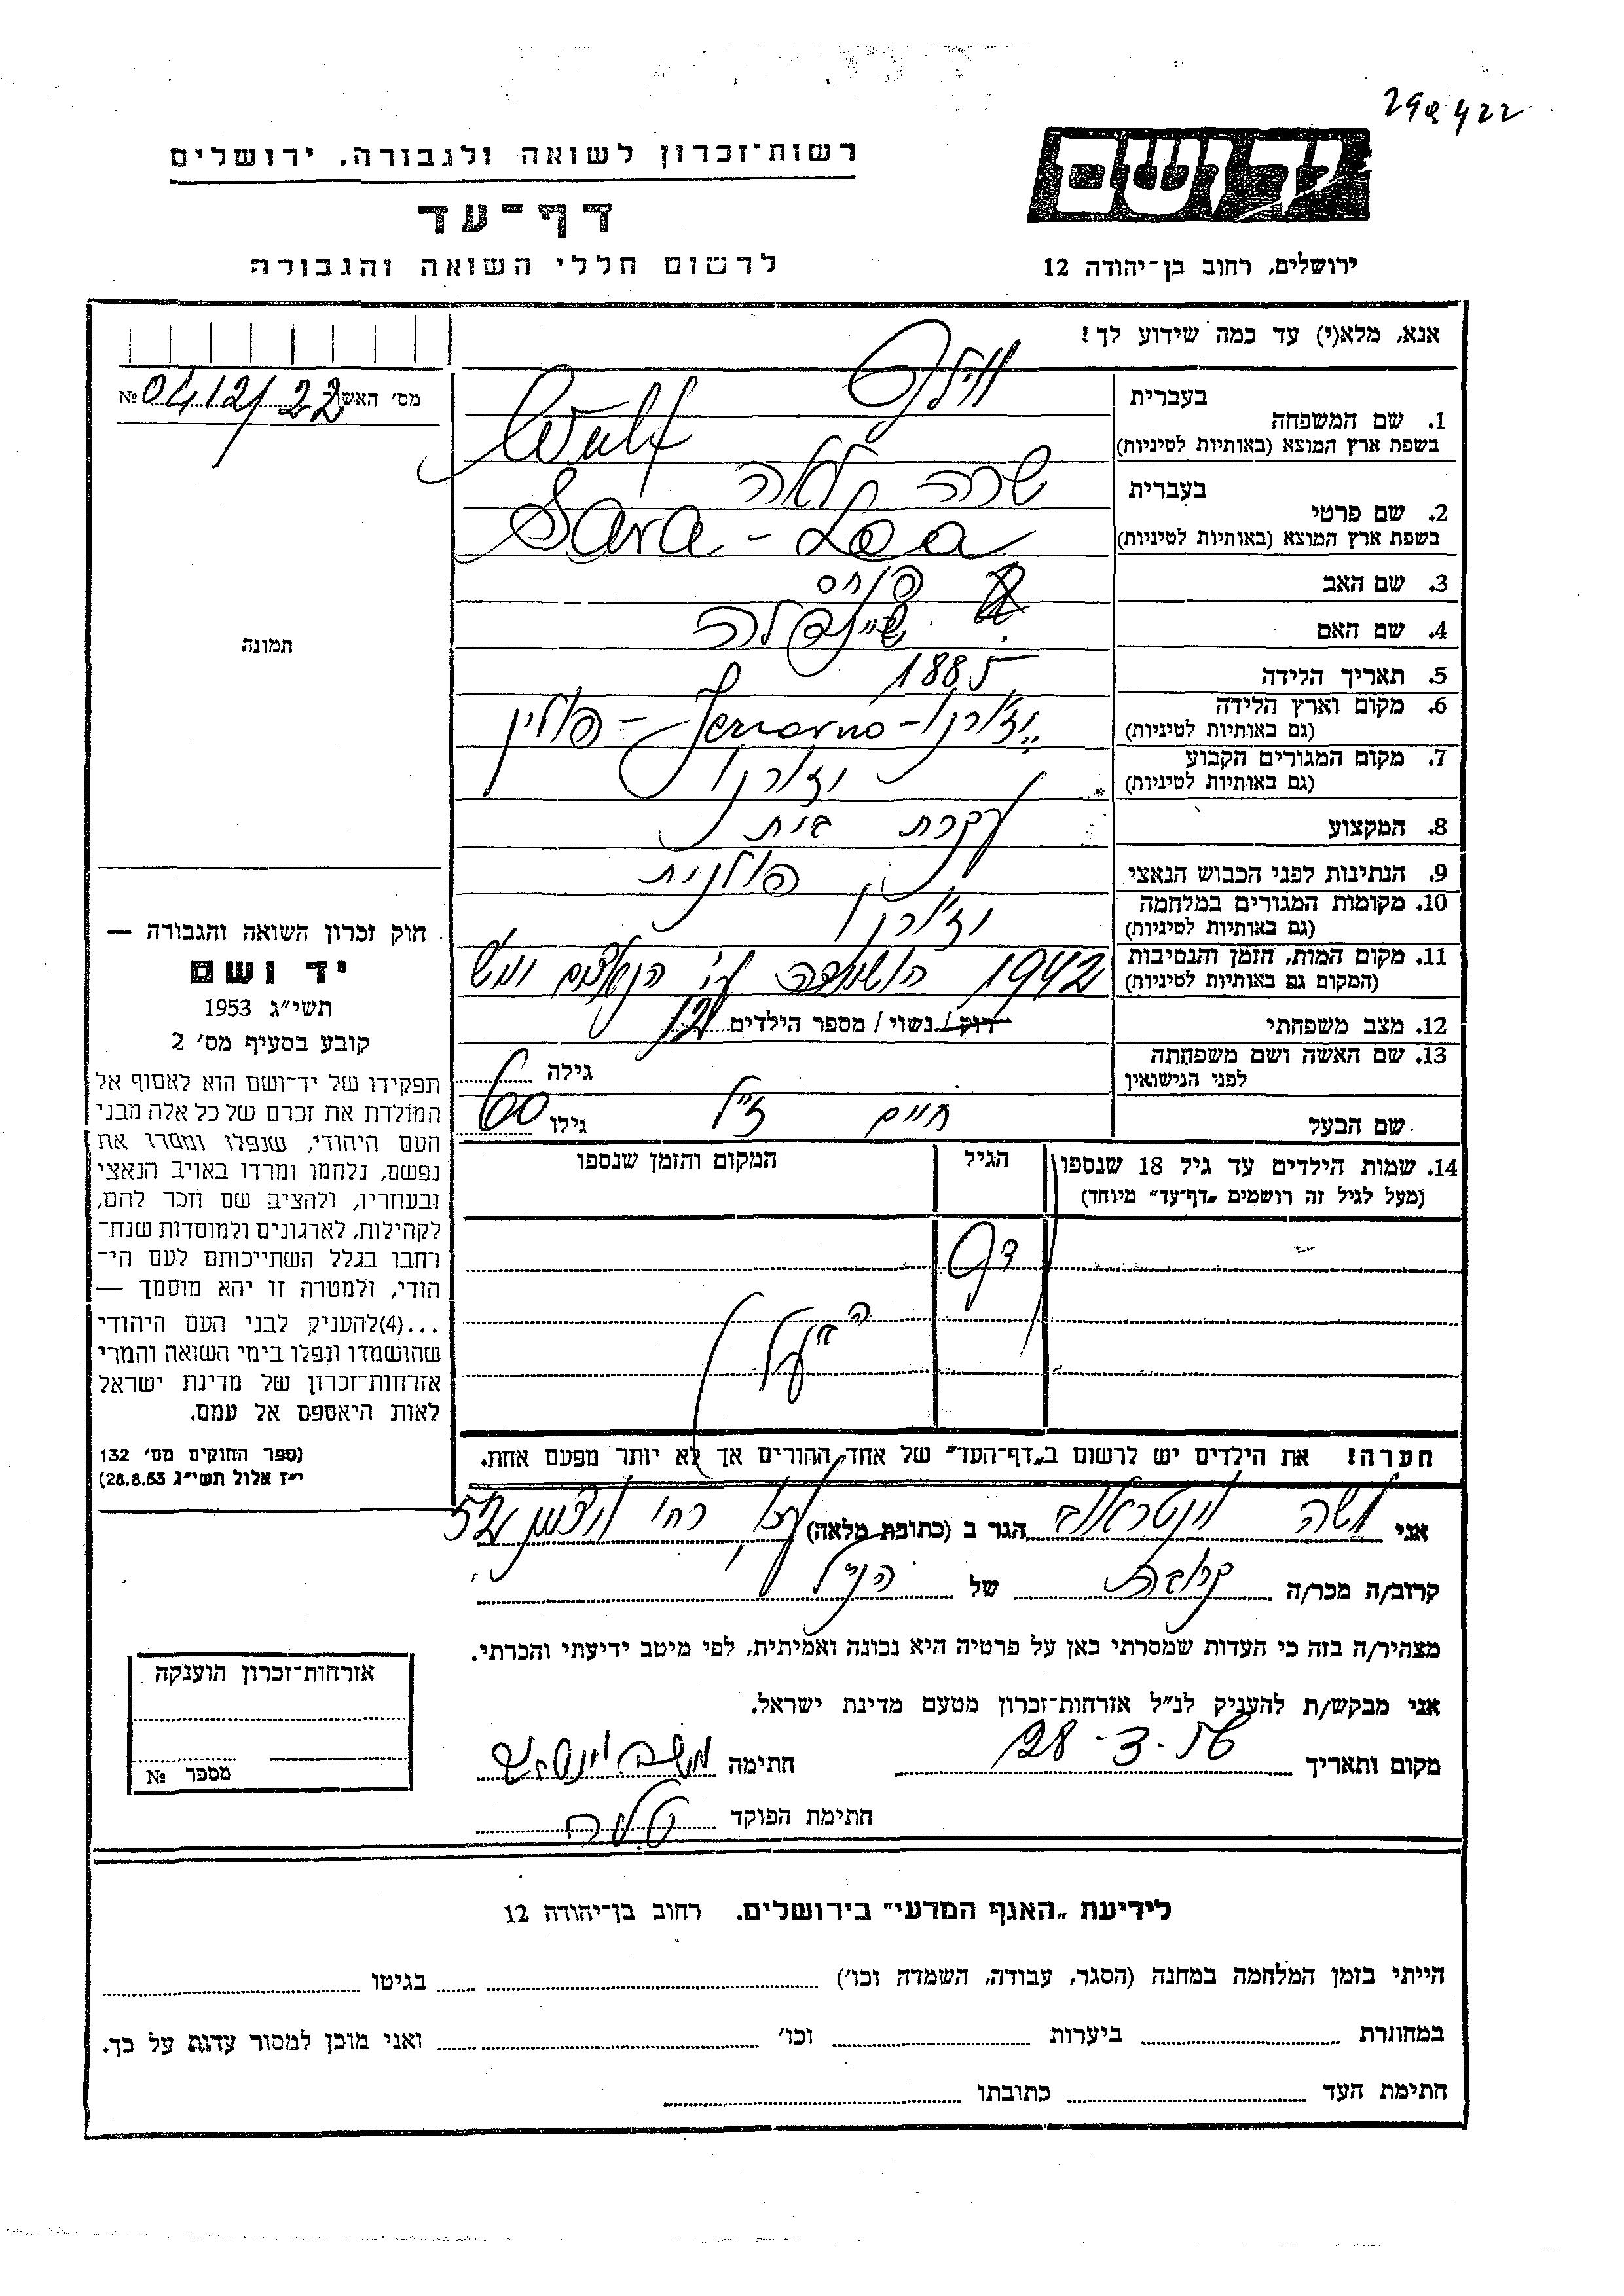 299422
יד ושם
רשות־זכרון לשואה ולגבורה. ירושלים
דף־עד
לרשום חללי השואה והגבורה
ירושלים, רחוב בן־יהודה 12
אנא, מלא(י) עד כמה שידוע לך!
מס׳ האשו № 0412/22
1. שם המשפחה
בעברית
בשפת ארץ המוצא (באותיות לטיניות) Wulf
2. שם פרטי
בעברית שרה לאה
בשפת ארץ המוצא (באותיות לטיניות) Sara - Lea
3. שם האב
4. שם האם שיינדלה
5. תאריך הלידה 1885
6. מקום וארץ הלידה
(גם באותיות לטיניות) פולין
7. מקום המגורים הקבוע
(גם באותיות לטיניות)
8. המקצוע עקרת בית
9. הנתינות לפני הכבוש הנאצי פולנית
10. מקומות המגורים במלחמה
(גם באותיות לטיניות)
11. מקום המות, הזמן והנסיבות
(המקום גם באותיות לטיניות) 1942 הושמדה ע״י הנאצים
12. מצב משפחתי רוק / נשוי / מספר הילדים
13. שם האשה ושם משפחתה
לפני הנישואין
גילה
שם הבעל חיים ז״ל גילו 60
תמונה
חוק זכרון השואה והגבורה —
יד ושם
תשי״ג 1953
קובע בסעיף מס׳ 2
תפקידו של יד־ושם הוא לאסוף אל
המולדת את זכרם של כל אלה מבני
העם היהודי, שנפלו ומסרו את
נפשם, נלחמו ומרדו באויב הנאצי
ובעוזריו, ולהציב שם וזכר להם,
לקהילות, לארגונים ולמוסדות שנח־
רחבו בגלל השתייכותם לעם הי־
הודי, ולמטרה זו יהא מוסמך —
...(4)להעניק לבני העם היהודי
שהושמדו ונפלו בימי השואה והמרי
אזרחות־זכרון של מדינת ישראל
לאות היאספם אל עמם.
(ספר החוקים מס׳ 132
י״ז אלול תשי״ג 28.8.53)
14. שמות הילדים עד גיל 18 שנספו
(מעל לגיל זה רושמים „דף־עד״ מיוחד)
הגיל
המקום והזמן שנספו
דף
הערה! את הילדים יש לרשום ב„דף־העד״ של אחד ההורים אך לא יותר מפעם אחת.
אני משה וינטראוב הגר ב (כתובת מלאה)
קרוב/ה מכר/ה קרובת של הנ״ל
מצהיר/ה בזה כי העדות שמסרתי כאן על פרטיה היא נכונה ואמיתית, לפי מיטב ידיעתי והכרתי.
אני מבקש/ת להעניק לנ״ל אזרחות־זכרון מטעם מדינת ישראל.
מקום ותאריך 28-3-56 חתימה
חתימת הפוקד
אזרחות־זכרון הוענקה
מספר №
לידיעת „האגף המדעי״ בירושלים. רחוב בן־יהודה 12
הייתי בזמן המלחמה במחנה (הסגר, עבודה, השמדה וכו׳) בגיטו
במחתרת ביערות וכו׳ ואני מוכן למסור עדות על כך.
חתימת העד כתובתו